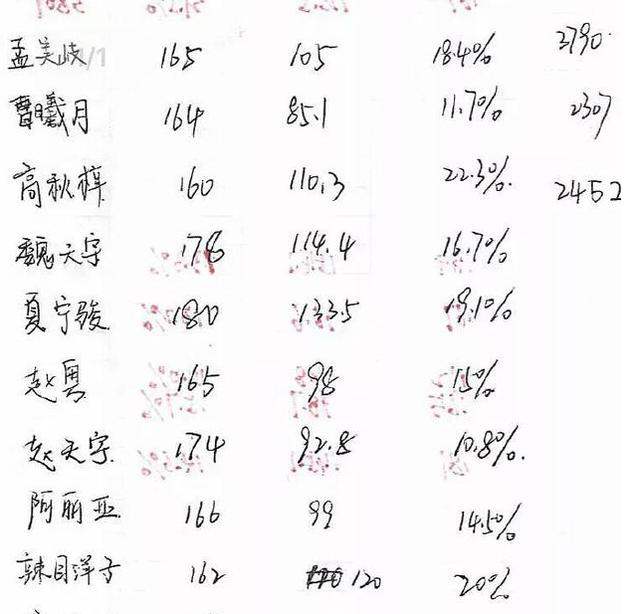 孟美岐 165 105 18.4% 3790
曹曦月 164 85.1 11.7% 2307
高秋梓 160 110.3 22.3% 2452
魏天宇 178 114.4 16.7%
夏宁骏 180 133.5 19.1%
赵粤 165 98 15%
赵天宇 174 92.8 10.8%
阿丽亚 166 99 14.5%
辣目洋子 162 120 20%